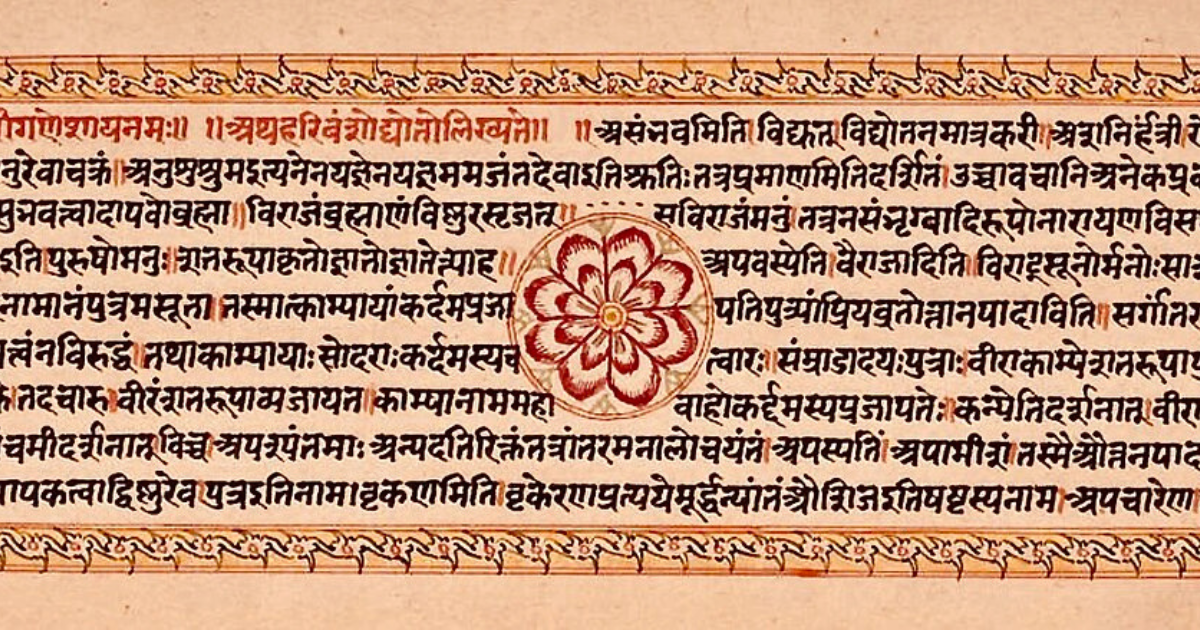 ीगणेशायनमः॥ ॥अथहरिवंशोद्योतोलिख्यते॥ ॥असंभवमिति।विद्यकत्।विद्योतनमात्रकरी॥अशनिर्हत्री
नुरेवाचक्रं॥अनुशुश्रुमइत्यनेनयज्ञेनयज्ञममजंतदेवाइतिश्रुतिःतत्रप्रमाणमितिदर्शितं।उच्चावचानिअनेकप्र
विराजंब्रह्माणंविष्णुरसृजत॥ सविराजंमनुं।तत्रनसंभृग्वादिरूपोनारायणविस
इति।पुरुषोमनुः॥शतरूपाकृतोज्ञातोज्ञातेत्याह॥ अपवस्येति।वैराजादिति।विराट्सूनोर्मनोः
नामानंपुत्रमसूता।तस्मात्काम्यायांकर्दमप्रजा पतिपुत्र्यांप्रियव्रतोत्तानपादाविति॥
त्वंनविरुद्धं।तथाकाम्यायाःसोदराःकर्दमस्यच त्वारः॥संम्राडादयःपुत्राः।वीराकाम्येशतरूपा
तदचारु।वीरंशतरूपाव्यजायत॥काम्यानाममहा वाहोकर्द्दमस्यप्रजापतेः।कन्येतिदर्शनात्।वीरा
चमीदर्शनात्।विच्च।अपश्पंतमाः अन्यदतिरिक्तंतत्रांतरमनालोचयंतं।अपस्पतिं।अपामीशं।तस्मैऔत्तनपाद
पापकत्वाद्विष्णुरेव।पुत्रइतिनाम।वृकणमिति।वृकेरणप्रत्ययेमूर्द्धन्यांतंऔशिजइतिषष्टस्यनाम।अपचारेण